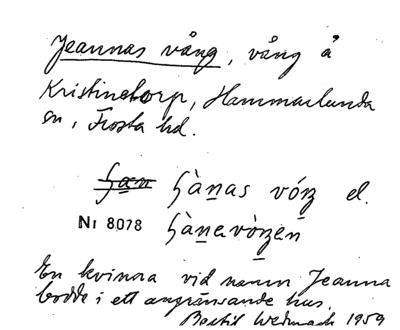 Jeannas vång, vång å
Kristinetorp, Hammarlunda
sn, Frosta hd.
ʃàn̲as vóŋ el.
Nr 8078 ʃàn̲evòŋ̲en̲
En kvinna vid namn Jeanna
bodde i ett angränsande hus.
Bertil Wedmark 1959